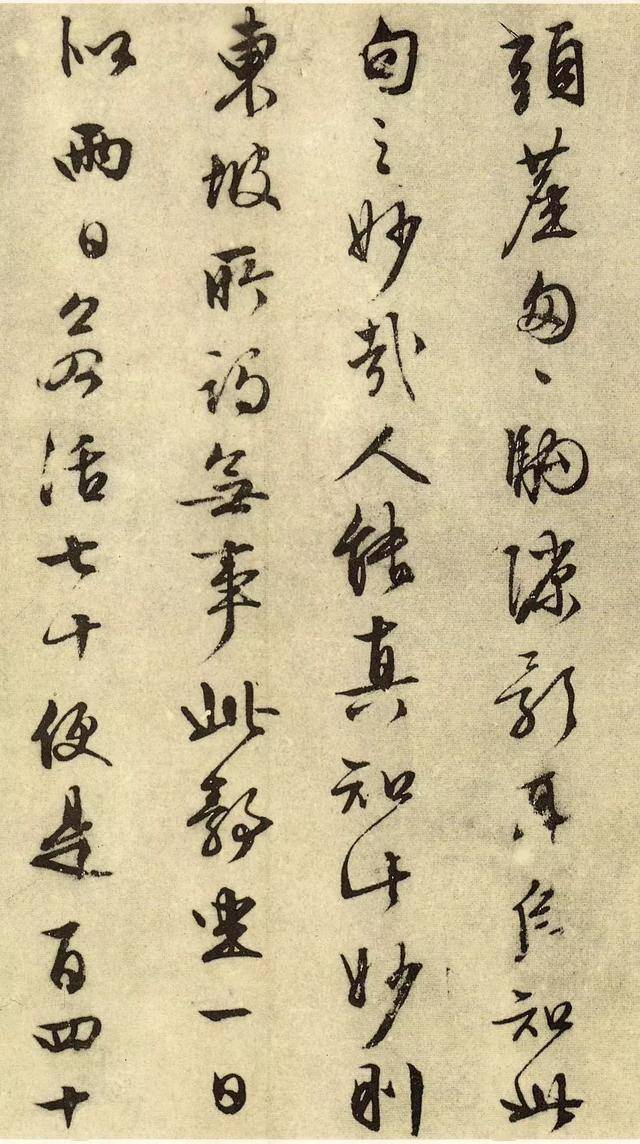 頭塵匆々駒隙影耳烏知此
句之妙哉人能真知此妙則
東坡所謂無事此靜坐一日
似兩日若活七十便是百四十